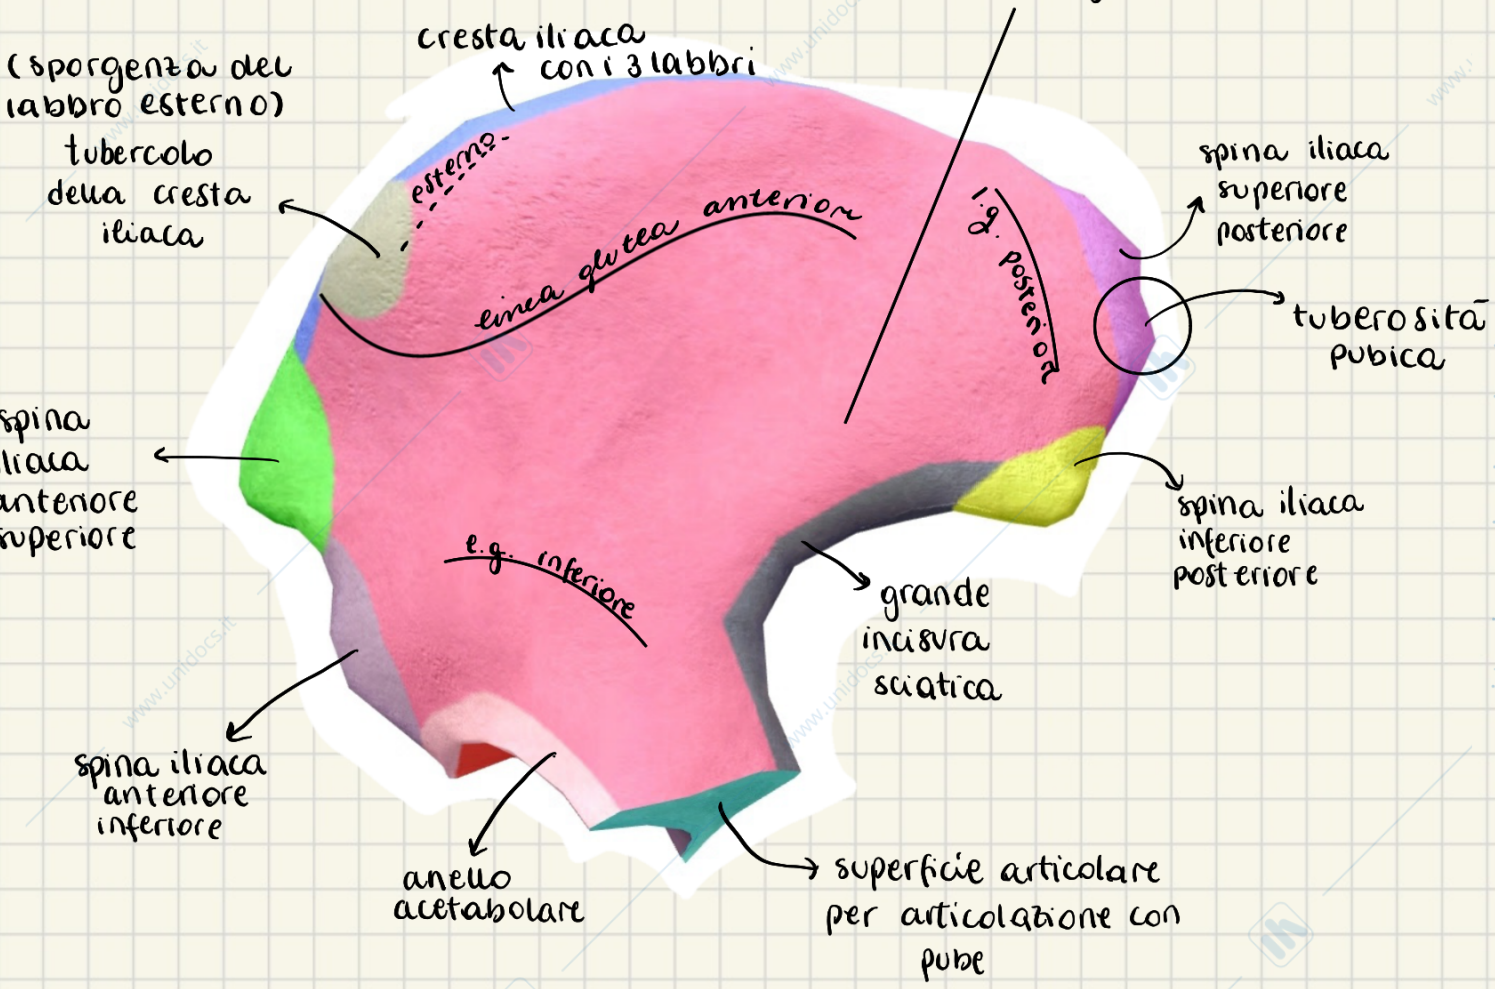 cresta iliaca
con i 3 labbri
(sporgenza del
labbro esterno)
tubercolo
della cresta
iliaca
esterno
linea glutea anteriore
l.g. posteriore
spina iliaca
superiore
posteriore
tuberosità
pubica
spina
iliaca
anteriore
superiore
l.g. inferiore
spina iliaca
inferiore
posteriore
grande
incisura
sciatica
spina iliaca
anteriore
inferiore
anello
acetabolare
superficie articolare
per articolazione con
pube
www.unidocs.it